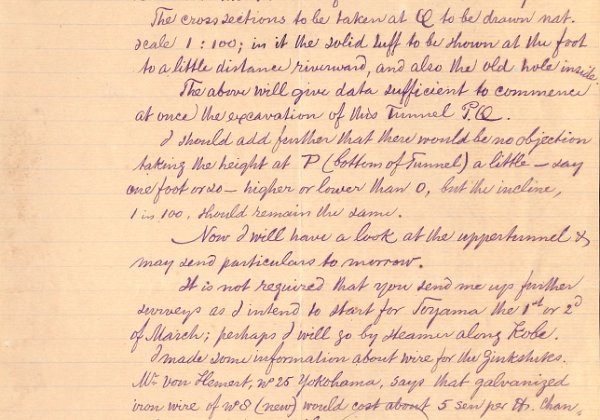 The cross sections to be taken at Q to be drawn nat.
scale 1 : 100; in it the solid tuff to be shown at the foot
to a little distance riverward, and also the old hole inside.
The above will give data sufficient to commence
at once) the excavation of this Tunnel P.Q.
I should add further that there would be no objection
taking the height at P (bottom of Tunnel) a little – say
one foot or so – higher or lower than 0, but the incline,
1 in 100, should remain the same.
Now I will have a look at the uppertunnel &
may send particulars to morrow.
It is not required that you send me up further
surveys as I intend to start for Toyama the 1st or 2d
of March; perhaps I will go by steamer along Kobe.
I made some information about wire for the
Mr von Hemert, No 25 Yokohama, says that galvanized
iron wire of No 8 (new) would cost about 5 sen per lb. Chan-